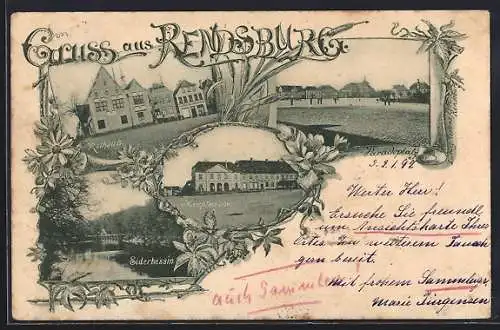 Gruss aus Rendsburg.
Rathaus
Paradeplatz
Eiderbassin
Werter Herr!
Ersuche Sie freundl.
um Ansichtskarte Ihres
Ortes. Zu weiterem Tausch
gern bereit.
Mit frohem Sammlergr.
Marie Jürgensen
auch Sammler